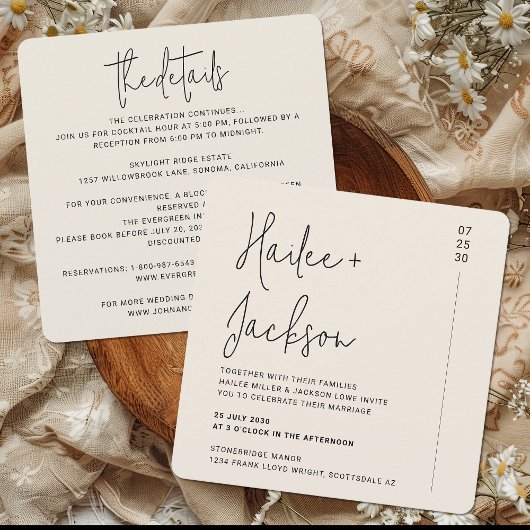 the details
THE CELEBRATION CONTINUES...
JOIN US FOR COCKTAIL HOUR AT 5:00 PM, FOLLOWED BY A
RECEPTION FROM 6:00 PM TO MIDNIGHT.
SKYLIGHT RIDGE ESTATE
1257 WILLOWBROOK LANE, SONOMA, CALIFORNIA
FOR YOUR CONVENIENCE, A BLOC
RESERVED A
THE EVERGREEN IN
PLEASE BOOK BEFORE JULY 20, 20
DISCOUNTED
RESERVATIONS: 1-800-987-6543
WWW.EVERGRE
FOR MORE WEDDING D
WWW.JOHNAN
Hailee +
Jackson
07
25
30
TOGETHER WITH THEIR FAMILIES
HAILEE MILLER & JACKSON LOWE INVITE
YOU TO CELEBRATE THEIR MARRIAGE
25 JULY 2030
AT 3 O'CLOCK IN THE AFTERNOON
STONEBRIDGE MANOR
1234 FRANK LLOYD WRIGHT, SCOTTSDALE AZ